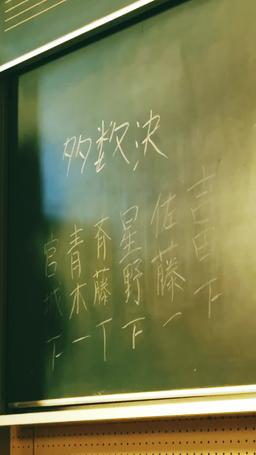 多数決
吉田 下
佐藤 一
星野 下
斉藤 丁
青木 一
宮城 下